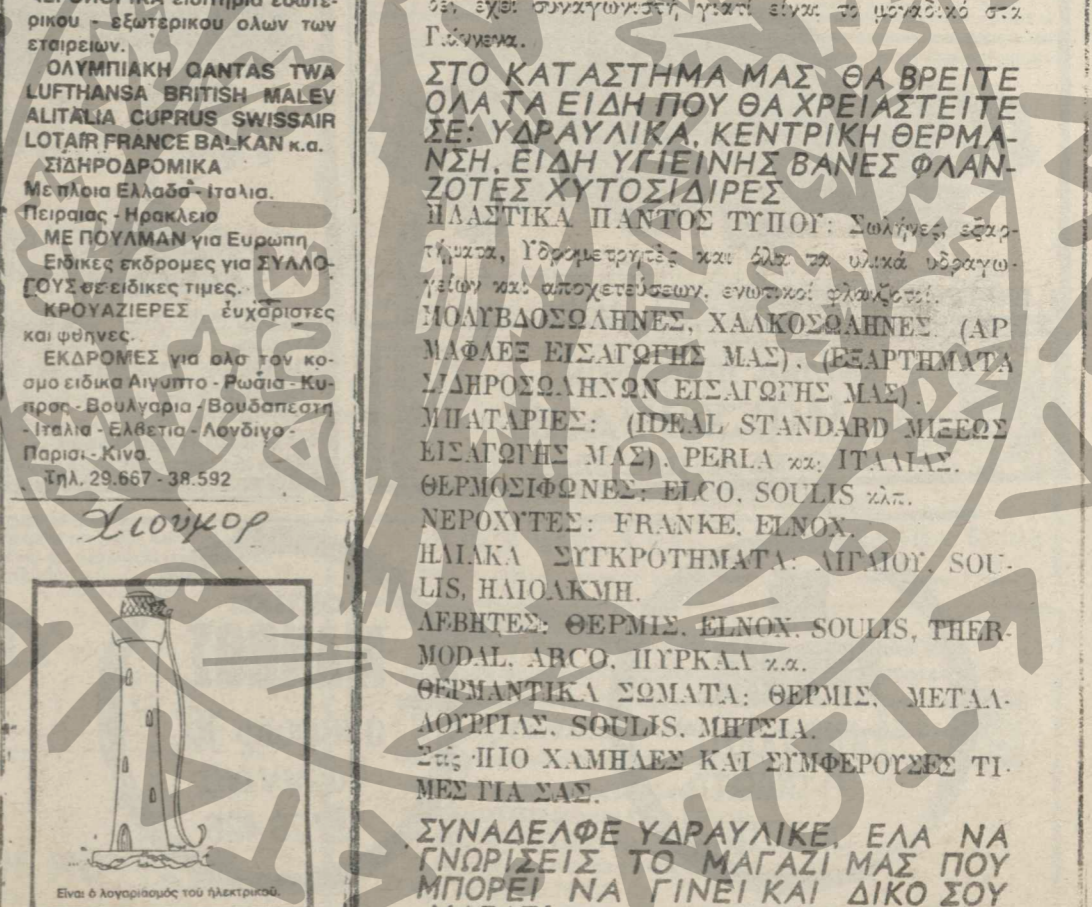 ΑΕΡΟΠΟΡΙΚΑ εισιτηρια εσωτε-
ρικου - εξωτερικου ολων των
εταιρειων.
ΟΛΥΜΠΙΑΚΗ QANTAS TWA
LUFTHANSA BRITISH MALEV
ALITALIA CUPRUS SWISSAIR
LOTAIR FRANCE BALKAN κ.α.
ΣΙΔΗΡΟΔΡΟΜΙΚΑ
Με πλοια Ελλαδα - Ιταλια.
Πειραιας - Ηρακλειο
ΜΕ ΠΟΥΛΜΑΝ για Ευρωπη
Ειδικες εκδρομες για ΣΥΛΛΟ-
ΓΟΥΣ σε ειδικες τιμες.
ΚΡΟΥΑΖΙΕΡΕΣ ευχαριστες
και φθηνες.
ΕΚΔΡΟΜΕΣ για ολο τον κο-
σμο ειδικα Αιγυπτο - Ρωσια - Κυ-
προς - Βουλγαρια - Βουδαπεστη
- Ιταλια - Ελβετια - Λονδινο -
Παρισι - Κινα.
Τηλ. 29.667 - 38.592
Χιούμορ
Είναι ὁ λογαριασμός τοῦ ἠλεκτρικοῦ.
δέν ἔχει συναγωνιστή γιατί εἶναι τό μοναδικό στά
Γιάννενα.
ΣΤΟ ΚΑΤΑΣΤΗΜΑ ΜΑΣ ΘΑ ΒΡΕΙΤΕ
ΟΛΑ ΤΑ ΕΙΔΗ ΠΟΥ ΘΑ ΧΡΕΙΑΣΤΕΙΤΕ
ΣΕ: ΥΔΡΑΥΛΙΚΑ, ΚΕΝΤΡΙΚΗ ΘΕΡΜΑ-
ΝΣΗ, ΕΙΔΗ ΥΓΙΕΙΝΗΣ ΒΑΝΕΣ ΦΛΑΝ-
ΖΟΤΕΣ ΧΥΤΟΣΙΔΙΡΕΣ
ΠΛΑΣΤΙΚΑ ΠΑΝΤΟΣ ΤΥΠΟΥ: Σωλήνες, ἐξαρ-
τήματα, Ὑδρομετρητές καί ὅλα τά ὑλικά ὑδραγω-
γείων καί ἀποχετεύσεων, ἑνωτικοί φλανζοτοί.
ΜΟΛΥΒΔΟΣΩΛΗΝΕΣ, ΧΑΛΚΟΣΩΛΗΝΕΣ, (ΑΡ
ΜΑΦΛΕΞ ΕΙΣΑΓΩΓΗΣ ΜΑΣ), (ΕΞΑΡΤΗΜΑΤΑ
ΣΙΔΗΡΟΣΩΛΗΝΩΝ ΕΙΣΑΓΩΓΗΣ ΜΑΣ).
ΜΠΑΤΑΡΙΕΣ: (IDEAL STANDARD ΜΙΞΕΩΣ
ΕΙΣΑΓΩΓΗΣ ΜΑΣ), PERLA καί ΙΤΑΛΙΑΣ.
ΘΕΡΜΟΣΙΦΩΝΕΣ: ELCO, SOULIS κλπ.
ΝΕΡΟΧΥΤΕΣ: FRANKE, ELNOX.
ΗΛΙΑΚΑ ΣΥΓΚΡΟΤΗΜΑΤΑ: ΑΙΓΑΙΟΥ, SOU-
LIS, ΗΛΙΟΑΚΜΗ.
ΛΕΒΗΤΕΣ: ΘΕΡΜΙΣ, ELNOX, SOULIS, THER-
MODAL, ARCO, ΠΥΡΚΑΛ κ.α.
ΘΕΡΜΑΝΤΙΚΑ ΣΩΜΑΤΑ: ΘΕΡΜΙΣ, ΜΕΤΑΛ-
ΛΟΥΡΓΙΑΣ, SOULIS, ΜΗΤΣΙΑ.
Στίς ΠΙΟ ΧΑΜΗΛΕΣ ΚΑΙ ΣΥΜΦΕΡΟΥΣΕΣ ΤΙ-
ΜΕΣ ΓΙΑ ΣΑΣ.
ΣΥΝΑΔΕΛΦΕ ΥΔΡΑΥΛΙΚΕ, ΕΛΑ ΝΑ
ΓΝΩΡΙΣΕΙΣ ΤΟ ΜΑΓΑΖΙ ΜΑΣ ΠΟΥ
ΜΠΟΡΕΙ ΝΑ ΓΙΝΕΙ ΚΑΙ ΔΙΚΟ ΣΟΥ